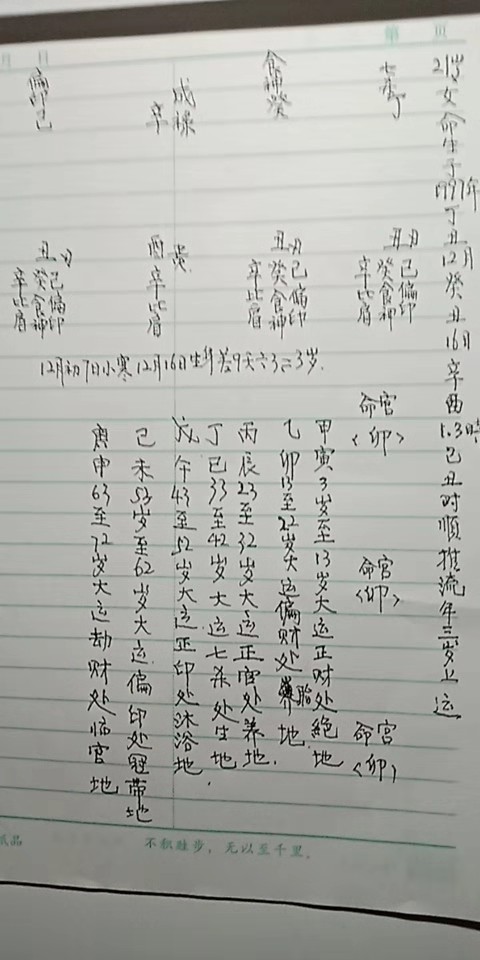 第 页
月 日
21岁女命生于1997年丁丑12月癸丑16日辛酉1.3時己丑时順推流年三岁上运
七杀丁
食神癸
成禄
辛
偏印己
丑月
己偏印
癸食神
辛比肩
丑月
己偏印
癸食神
辛比肩
酉
辛比肩
丑月
己偏印
癸食神
辛比肩
12月初7日小寒12月16日生年差9天
命宫
<卯>
命宫
<卯>
命宫
<卯>
甲寅3岁至13岁大运正财处絕地
乙卯13至22岁大运偏财处胎地.
丙辰23至32岁大运正官处养地.
丁巳33至42岁大运七杀处生地.
戊午43至52岁大运正印处沐浴地.
己未53岁至62岁大运偏印处冠带地
庚申63至72岁大运劫财处临官地
纸品
不积跬步，无以至千里。